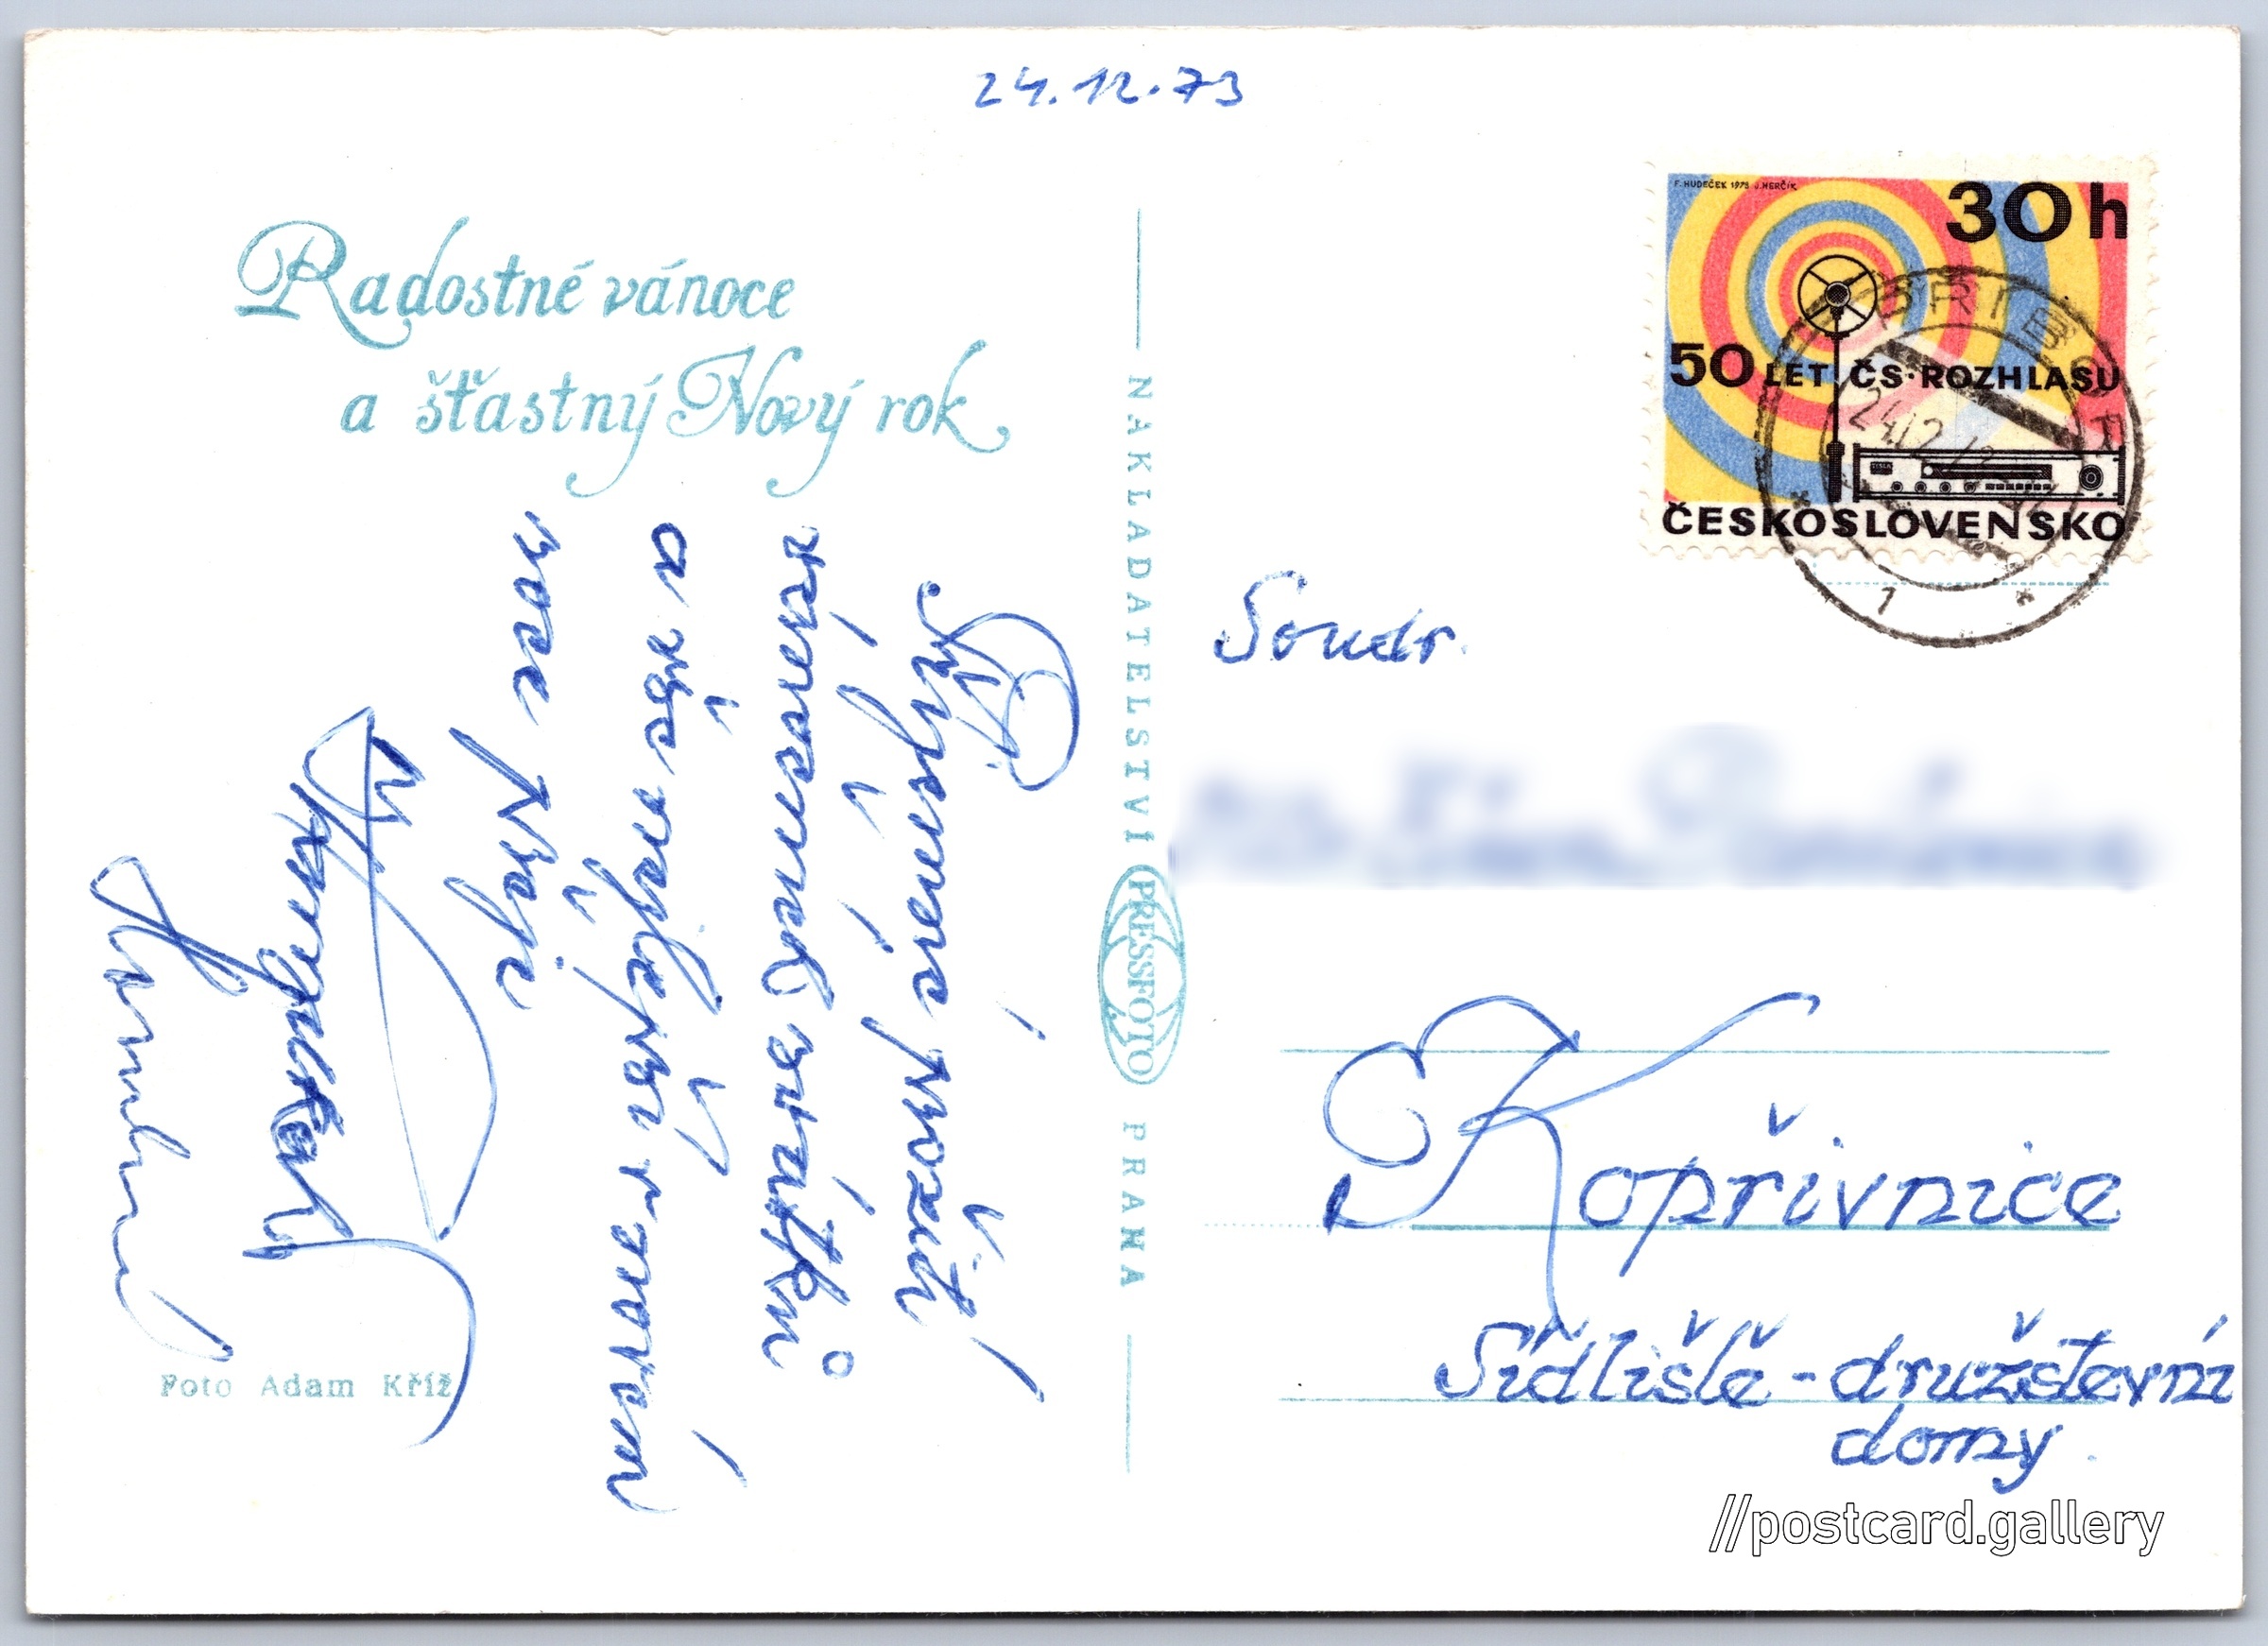 24.12.73
Radostné vánoce
a šťastný Nový rok
Příjemné prožití
vánočních svátků
a vše nejlepší v novém
roce přeje
NAKLADATELSTVÍ PRESSFOTO PRAHA
Foto Adam Kříž
F. HUDEČEK 1973 J. HERČÍK
30h
50 LET ČS. ROZHLASU
ČESKOSLOVENSKO
PŘÍBOR
24.12.73
1
Soudr.
Kopřivnice
Sídliště - družstevní
domy.
//postcard.gallery